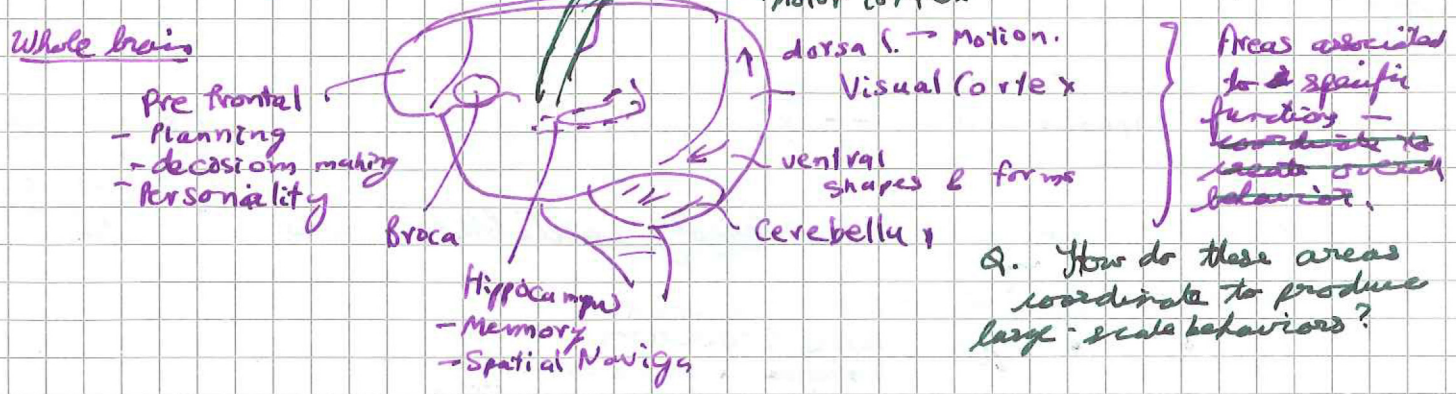 Motor Cortex
Whole brain
Pre frontal
- Planning
- decasiom making
- Personality
Broca
Hippocampus
- Memory
- Spatial Naviga
dorsal. → Motion.
Visual Cortex
ventral
shapes & forms
Cerebellu
Areas associated
to specific
functions –
coordinate to
create overall
behavior.
Q. How do these areas
coordinate to produce
large-scale behaviors?